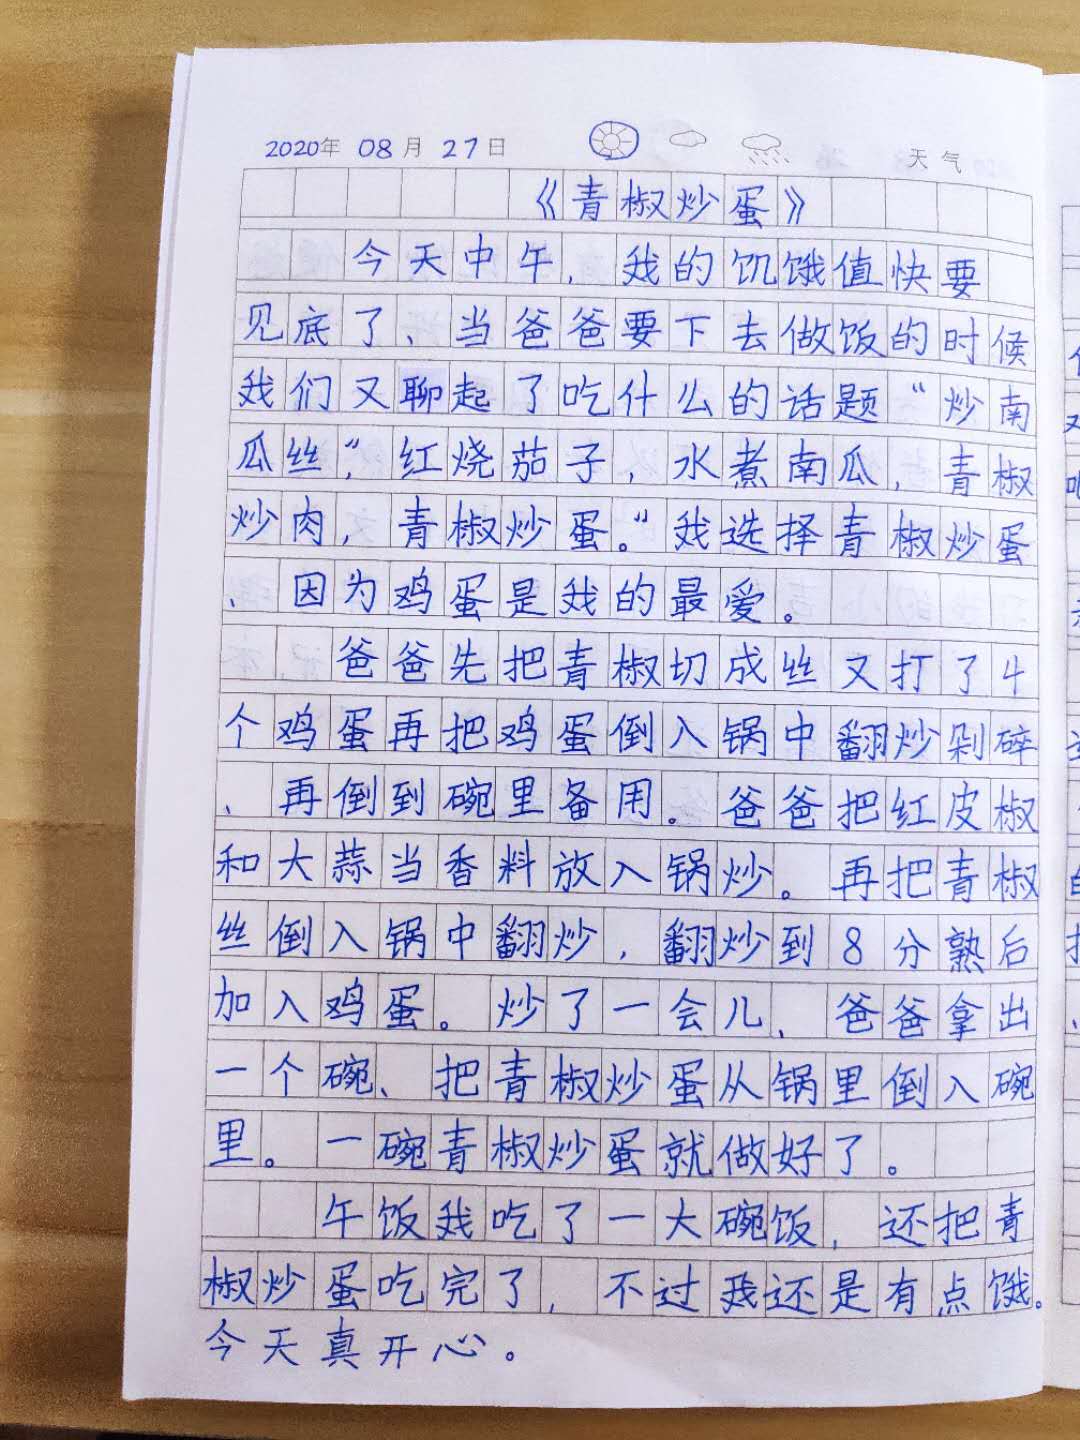 2020年 08月 27日 天气
《青椒炒蛋》
今天中午，我的饥饿值快要
见底了、当爸爸要下去做饭的时候
我们又聊起了吃什么的话题“炒南
瓜丝”，红烧茄子，水煮南瓜，青椒
炒肉，青椒炒蛋。”我选择青椒炒蛋
、因为鸡蛋是我的最爱。
爸爸先把青椒切成丝又打了4
个鸡蛋再把鸡蛋倒入锅中翻炒剁碎
、再倒到碗里备用。爸爸把红皮椒
和大蒜当香料放入锅炒。再把青椒
丝倒入锅中翻炒，翻炒到8分熟后
加入鸡蛋。炒了一会儿、爸爸拿出
一个碗、把青椒炒蛋从锅里倒入碗
里。一碗青椒炒蛋就做好了。
午饭我吃了一大碗饭，还把青
椒炒蛋吃完了，不过我还是有点饿。
今天真开心。